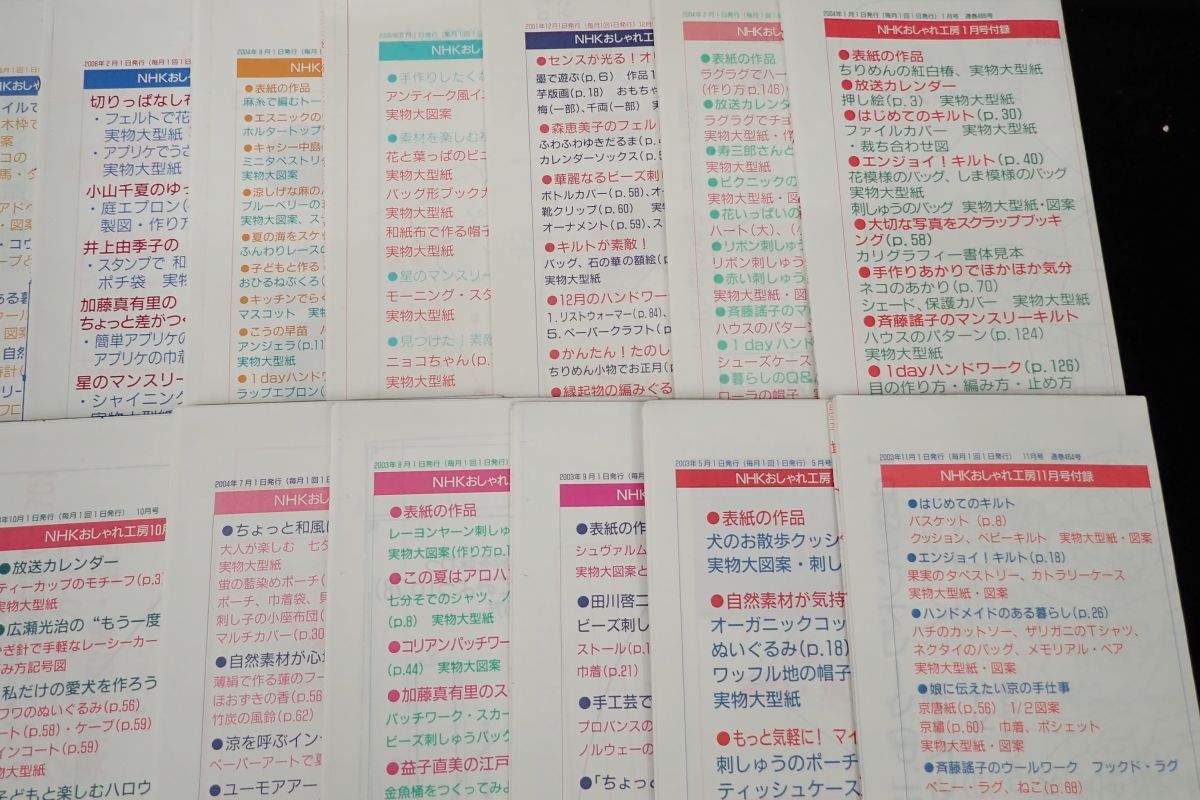 月1日発行(毎月1回1日
HKおし
2006年2月1日発行(毎月1回1日
NHKおし
切りっぱなし布
・フェルトで花
実物大型紙
・アプリケでうさ
実物大型紙
小山千夏のゆっ
・庭エプロン
製図・作り方
井上由季子の
・スタンプで 和
ポチ袋 実物
加藤真有里の
ちょっと差がつ
・簡単アプリケの
アプリケの巾着
星のマンスリー
・シャイニング
実物大型紙
2004年8月1日発行(毎月1
NHK
●表紙の作品
麻糸で編むトー
●エスニックの
ホルタートップ
●キャシー中島
ミニタペストリー
実物大図案
●涼しげな麻の
ブルーベリーの
実物大図案、ス
●夏の海をスケ
ふんわりレースの
●子どもと作る
おひるねぶくろ(
●キッチンでらく
マスコット 実物
●こうの早苗
アンジェラ(p.11
実物大型紙
●1dayハンド
ラップエプロン(
NHKおし
●手作りしたくな
アンティーク風イ
実物大図案
●素材を楽しむ
花と葉っぱのビ
実物大型紙
バッグ形ブックカ
実物大型紙
和紙布で作る帽子
実物大型紙
●星のマンスリー
モーニング・スタ
実物大型紙
●見つけた!素敵
ニョコちゃん(p.
実物大型紙
2001年12月1日発行(毎月1回1日発行)12月
NHKおし
●センスが光る!オリ
墨で遊ぶ(p.6) 作品1
芋版画(p.18) おもちゃ
梅(一部)、千両(一部)
●森恵美子のフェル
ふわふわゆきだるま(p.4
カレンダーソックス(p.5
●華麗なるビーズ刺し
ボトルカバー(p.58)、オー
靴クリップ(p.60) 実
オーナメント(p.59)、ス
●キルトが素敵!
バッグ、石の華の額絵(p
実物大型紙
●12月のハンドワー
1.リストウォーマー(p.84)、
5.ペーパークラフト(p
●かんたん!たのし
ちりめん小物でお正月(p
●縁起物の編みぐる
NHKおし
●表紙の作品
ラグラグでハー
(作り方p.146)
●放送カレンダ
ラグラグでチョ
実物大型紙・作
●寿三郎さんと
実物大型紙
●ピクニックの
実物大型紙・図
●花いっぱいの
ハート(大)、(小
●リボン刺しゅう
リボン刺しゅう
●赤い刺しゅう
実物大型紙・図
●斉藤謠子のマ
ハウスのパターン
●1dayハンド
シューズケース
●暮らしのQ&
ローラの帽子
2004年1月1日発行(毎月1回1日発行)1月号 通巻466号
NHKおしゃれ工房1月号付録
●表紙の作品
ちりめんの紅白椿、実物大型紙
●放送カレンダー
押し絵(p.3) 実物大型紙
●はじめてのキルト(p.30)
ファイルカバー 実物大型紙
・裁ち合わせ図
●エンジョイ!キルト(p.40)
花模様のバッグ、しま模様のバッグ
実物大型紙
刺しゅうのバッグ 実物大型紙・図案
●大切な写真をスクラップブッキ
ング(p.58)
カリグラフィー書体見本
●手作りあかりでほかほか気分
ネコのあかり(p.70)
シェード、保護カバー 実物大型紙
●斉藤謠子のマンスリーキルト
ハウスのパターン(p.124)
実物大型紙
●1dayハンドワーク(p.126)
目の作り方・編み方・止め方
年10月1日発行(毎月1回1日発行) 10月号
NHKおしゃれ工房10月
●放送カレンダー
ティーカップのモチーフ(p.3)
実物大型紙
●広瀬光治の“もう一度
かぎ針で手軽なレーシーカー
み方記号図
私だけの愛犬を作ろう
フワのぬいぐるみ(p.56)
ート(p.58)・ケープ(p.59)
インコート(p.59)
物大型紙
子どもと楽しむハロウ
2004年7月1日発行(毎月1回1日
NHKおし
●ちょっと和風に
大人が楽しむ 七夕
実物大型紙
蛍の藍染めポーチ(
ポーチ、巾着袋、
刺し子の小座布団(
マルチカバー(p.30
●自然素材が心地
薄絹で作る蓮のフー
ほおずきの香(p.56
竹炭の風鈴(p.62)
●涼を呼ぶイン
ペーパーアートで夏
●ユーモアアー
2003年8月1日発行(毎月1回1日発行)
NHKおしゃれ
●表紙の作品
レーヨンヤーン刺しゅ
実物大図案(作り方p.1
●この夏はアロハ
七分そでのシャツ、ノ
(p.8) 実物大型紙
●コリアンパッチワー
(p.44) 実物大図案
●加藤真有里のス
パッチワーク・スカー
ビーズ刺しゅうバッグ
●益子直美の江戸
金魚桶をつくってみよ
2003年9月1日発行(毎月1回1日
NHK
●表紙の作
シュヴァルム
実物大図案と
●田川啓二
ビーズ刺し
ストール(p.1
巾着(p.21)
●手工芸で
プロバンスの
ノルウェーの
●「ちょっと
2003年5月1日発行(毎月1回1日発行)5月号
NHKおしゃれ工房
●表紙の作品
犬のお散歩クッシ
実物大図案・刺し
●自然素材が気持
オーガニックコッ
ぬいぐるみ(p.18)
ワッフル地の帽子
実物大型紙
●もっと気軽に! マイ
刺しゅうのポーチ
ティッシュケース
2003年11月1日発行(毎月1回1日発行) 11月号 通巻464号
NHKおしゃれ工房11月号付録
●はじめてのキルト
バスケット(p.8)
クッション、ベビーキルト 実物大型紙・図案
●エンジョイ!キルト(p.18)
果実のタペストリー、カトラリーケース
実物大型紙・図案
●ハンドメイドのある暮らし(p.26)
ハチのカットソー、ザリガニのTシャツ、
ネクタイのバッグ、メモリアル・ベア
実物大型紙・図案
●娘に伝えたい京の手仕事
京唐紙(p.56) 1/2図案
京繍(p.60) 巾着、ポシェット
実物大型紙・図案
●斉藤謠子のウールワーク フックド・ラグ
ペニー・ラグ、ねこ(p.68)